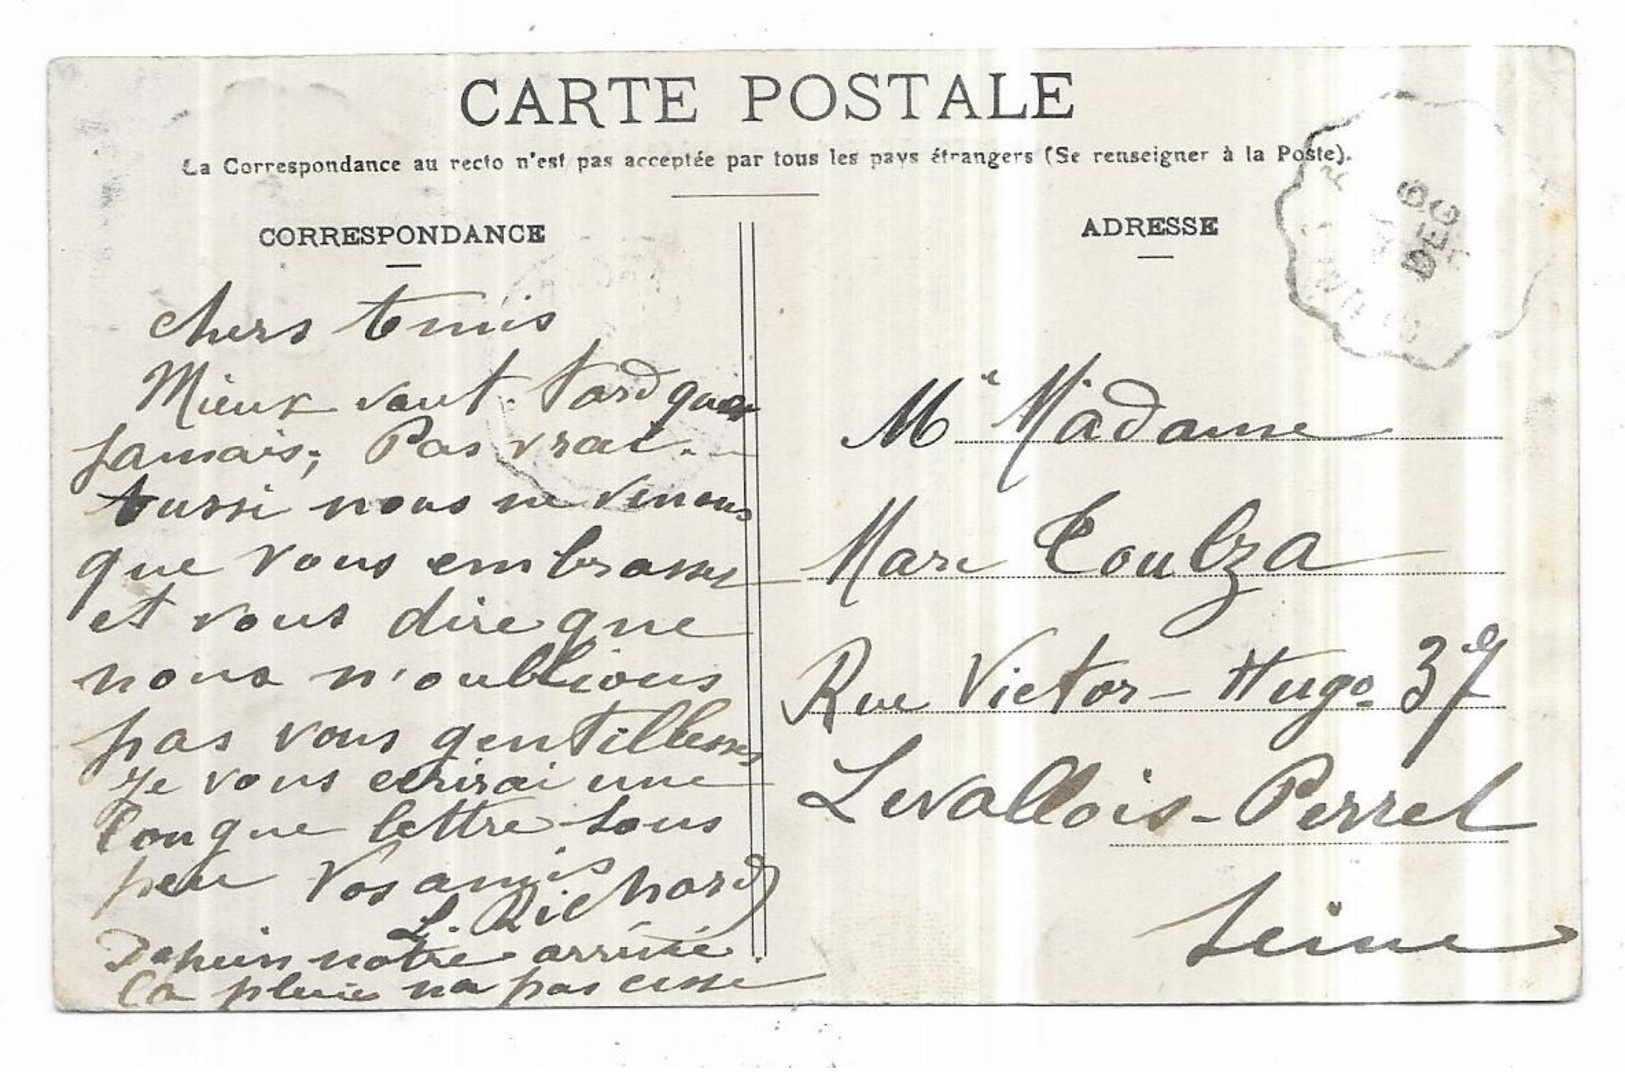 CARTE POSTALE
La Correspondance au recto n'est pas acceptée par tous les pays étrangers (Se renseigner à la Poste).
CORRESPONDANCE
chers amis
Mieux vaut tard que
jamais, Pas vrai.
Aussi nous ne venons
que vous embrasser
et vous dire que
nous n'oublions
pas vous gentillesses
Je vous ecrirai une
longue lettre sous
peu Vos amis
L. Richard
Depuis notre arrivée
la pluie na pas cessé
ADRESSE
6
DEC
Mr Madame
Marc Coulza
Rue Victor-Hugo 37
Levallois-Perret
Seine